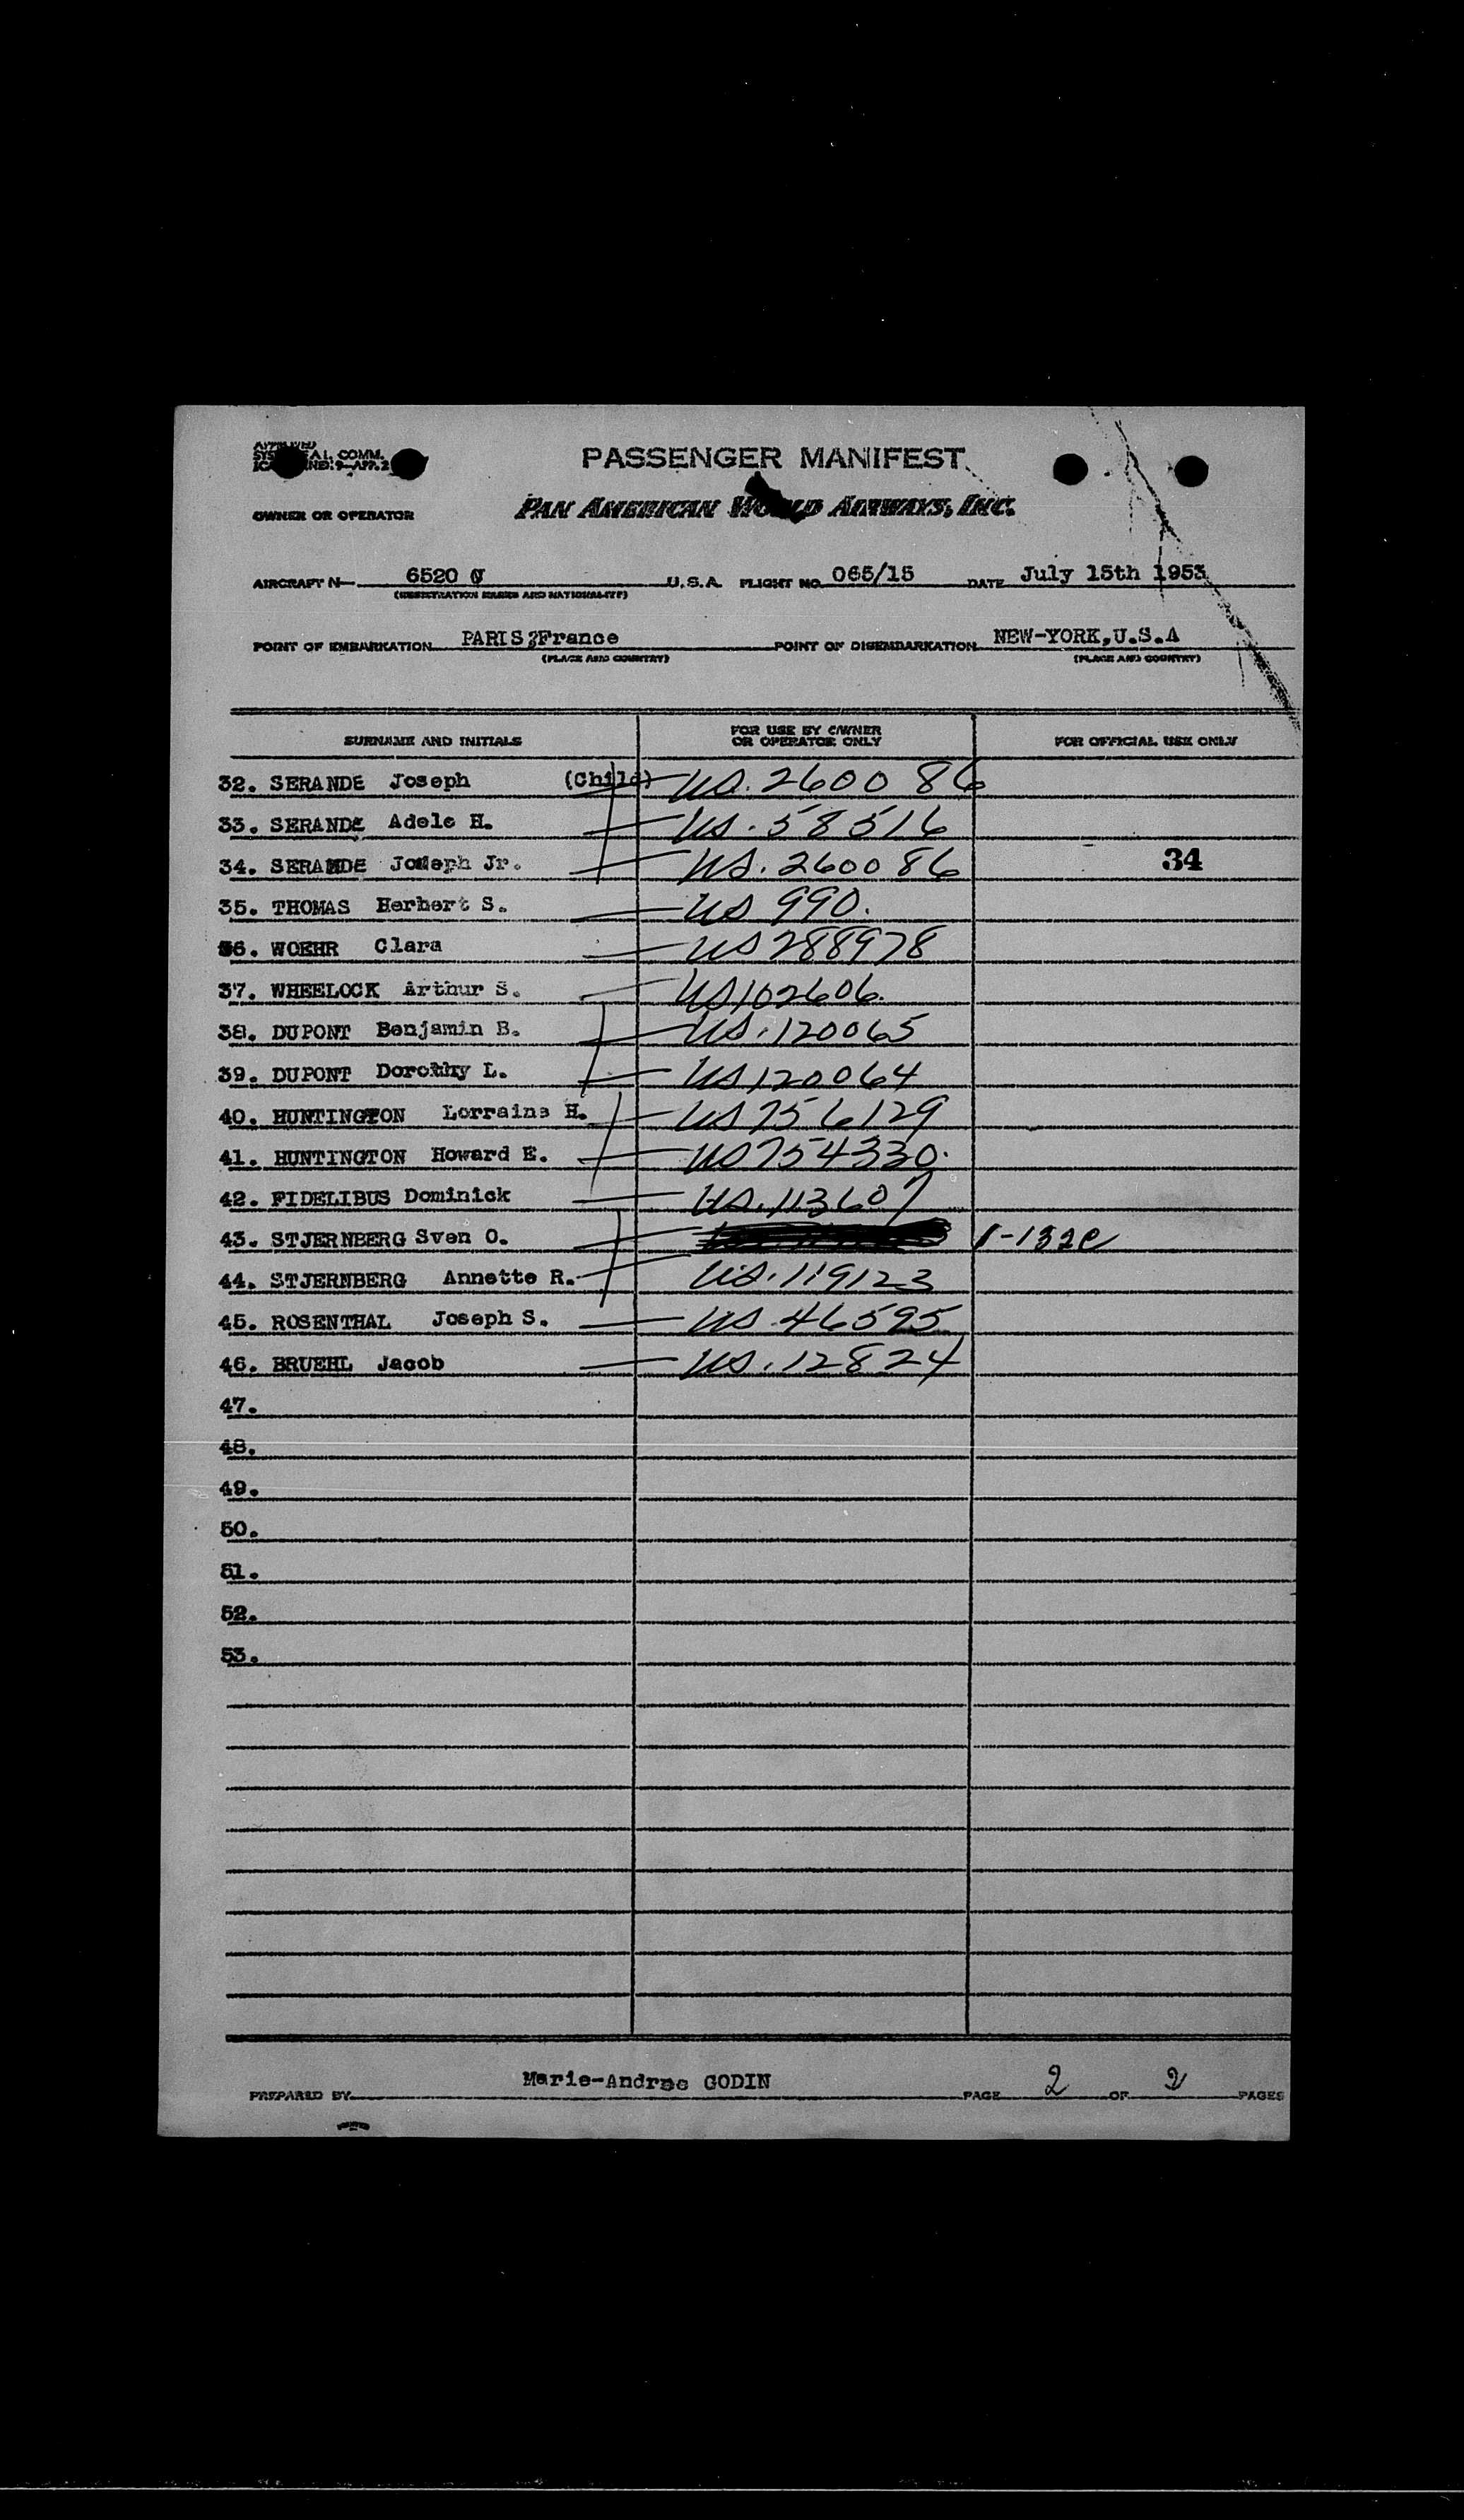 PASSENGER MANIFEST
PAN AMERICAN WORLD AIRWAYS, INC.
OWNER OR OPERATOR
AIRCRAFT N— 6520 U.S.A. FLIGHT NO. 065/15 DATE July 15th 1953
(REGISTRATION MARKS AND NATIONALITY)
POINT OF EMBARKATION PARIS,France POINT OF DISEMBARKATION NEW-YORK,U.S.A
(PLACE AND COUNTRY) (PLACE AND COUNTRY)
SURNAME AND INITIALS FOR USE BY OWNER OR OPERATOR ONLY FOR OFFICIAL USE ONLY
32. SERANDE Joseph (Child) US. 260086
33. SERANDE Adele H. US. 58516
34. SERANDE Joseph Jr. US. 260086 34
35. THOMAS Herbert S. US 990.
36. WOEHR Clara US 288978
37. WHEELOCK Arthur S. US 102606.
38. DUPONT Benjamin B. US. 120065
39. DUPONT Dorothy L. US 120064
40. HUNTINGTON Lorraine H. US 756129
41. HUNTINGTON Howard E. US 754330.
42. FIDELIBUS Dominick US. 113607
43. STJERNBERG Sven O. I-132e
44. STJERNBERG Annette R. US. 119123
45. ROSENTHAL Joseph S. US. 46595
46. BRUEHL Jacob US. 12824
47.
48.
49.
50.
51.
52.
53.
PREPARED BY Marie-Andree GODIN PAGE 2 OF 2 PAGES